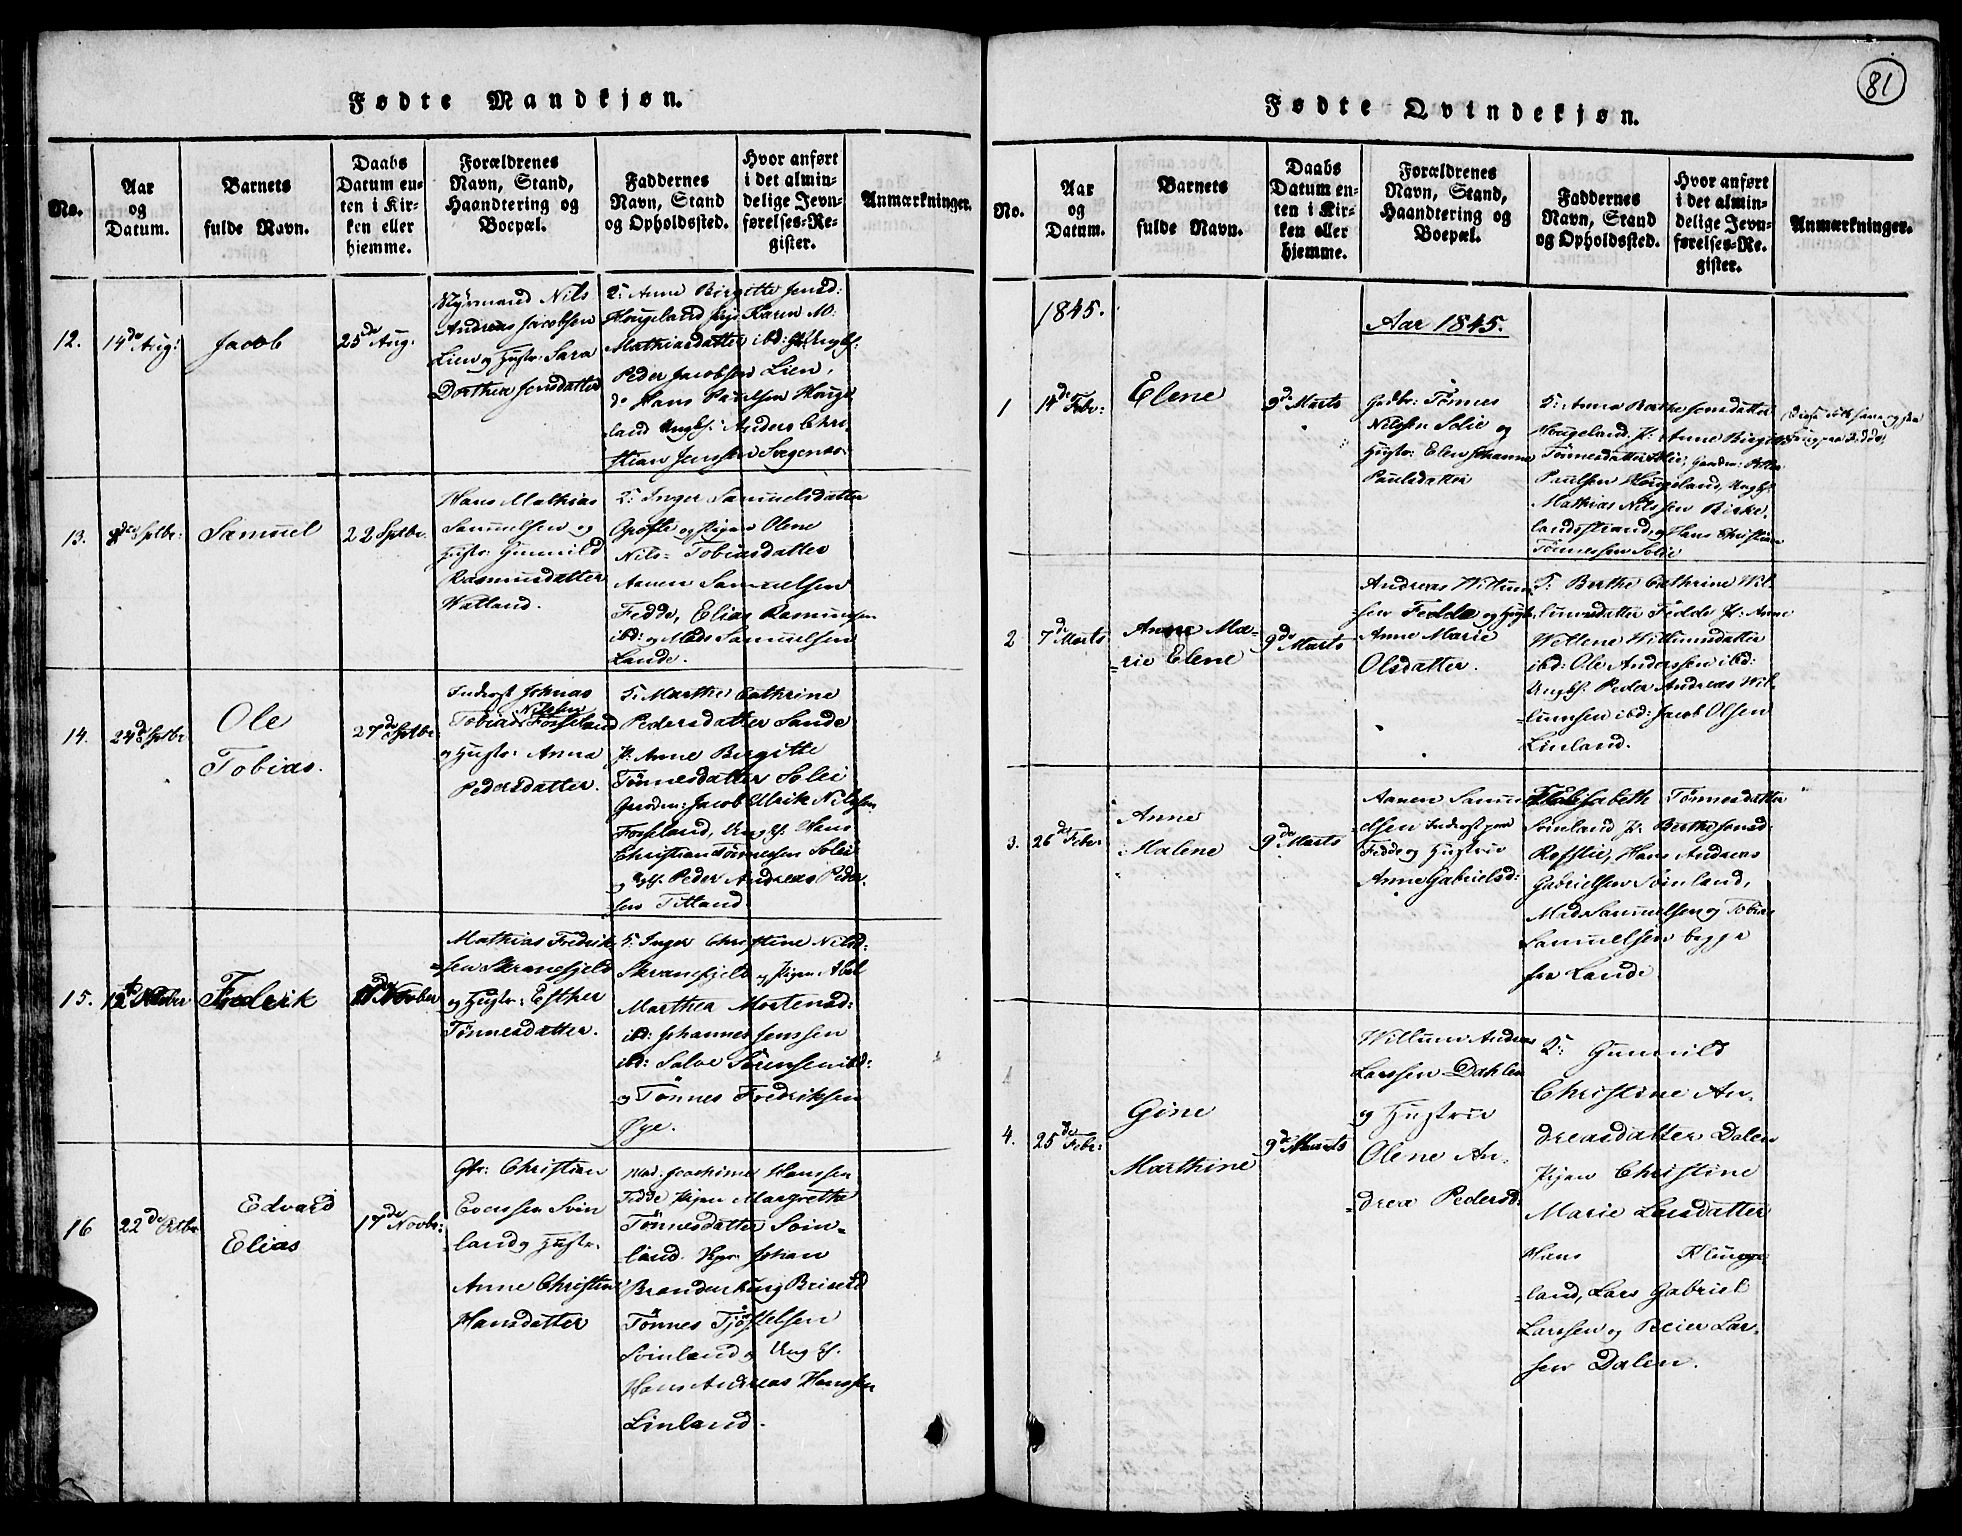 Fødte Mandkjøn.
No.
Aar
og
Datum.
Barnets
fulde Navn.
Daabs
Datum en-
ten i Kir-
ken eller
hjemme.
Forældrenes
Navn, Stand,
Haandtering og
Boepæl.
Faddernes
Navn, Stand
og Opholdssted.
Hvor anført
i det almin-
delige Jevn-
førelses-Re-
gister.
Anmærkninger.
12.
14de Aug:
Jacob
25de Aug.
Nils
Andreas Jacobsen
Lien og Hustr: Sara
Dorthea Jensdatter
2: Anne Birgitte Jensd:
Hougeland, Karen M.
Mathiasdatter ibd:
Peder Jacobsen Lien,
do Hans Paulsen Houge
land Ungk: Anders Chri-
stian Jenssen
13.
Sptbr:
Samuel
22 Sptbr.
Hans Mathias
Samuelsen og
Hustr: Gunnild
Rasmusdatter
Watland.
2: Inger Samuelsdatter
og Pigen Olene
Nils- Tobiasdatter
Aanen Samuelsen
Fedde, Elias Rasmussen
ibd: og Mads Samuelsen
Lande.
14.
24de Sptbr
Ole
Tobias.
27de Sptbr.
Inderst Johnas
Nilssen
Tobias Førseland
og Hustr: Anna
Pedersdatter.
5: Marthe Cathrine
Pedersdatter Sande
P: Anne Birgitte
Tønnesdatter Solei
Gaardm: Jacob Ulrik Nilssen
Førseland, Ungk: Hans
Christian Tønnessen Solei
og Peder Andreas Peder-
sen Titland.
15.
Fredrik
Novber
Mathias Fredrik-
sen Skranefjeld
og Hustr: Esther
Tønnesdatter.
5: Inger Christine Nilsd:
Skranefjeld og Pigen Abel
Marthea Mortensd:
ibd: Johannes Jenssen
ibd: Salve Sørensen ibd:
og Tønnes Fredriksen
Øye.
16
22de Octbr
Edvard
Elias
17de Novbr:
Gbr: Christian
Evenssen Svin
land og Hustr.
Anne Christine
Hansdatter
Mad. Joachime Hanssen
Fedde Pigen Margrethe
Tønnesdatter Svin-
land. Johan
Brandenburg
Tønnes Tjøstelsen
Svinland og Ungk.
Hans Andreas Hanssen
Linland.
81
Fødte Qvindekjøn.
No.
Aar
og
Datum.
Barnets
fulde Navn.
Daabs
Datum en-
ten i Kir-
ken eller
hjemme.
Forældrenes
Navn, Stand,
Haandtering og
Boepæl.
Faddernes
Navn, Stand
og Opholdssted.
Hvor anført
i det almin-
delige Jevn-
førelses-Re-
gister.
Anmærkninger.
1845.
Aar 1845.
1
14de Febr:
Elene
9de Marts
Gadbr: Tønnes
Nilssen Solie og
Hustr: Elen Johanne
Paulsdatter
5: Anna Berthe Jensdatter
Hougeland. P: Anne Birgitte
Tønnesdatter Solie, Gaardm: Peder
Paulsen Hougeland, Ungk:
Mathias Nilssen Birke-
landsstrand, og Hans Christian
Tønnessen Solie
2
7de Marts
Anne Ma-
rie Elene
9de Marts
Andreas Willum-
sen Fedde og Hustr.
Anne Marie
Olsdatter.
5: Berthe Cathrine Wil-
lumsdatter Fedde P: Anne
Wellene Willumsdatter
ibd: Ole Anderssen ibd:
Ungk: Peder Andreas Wil-
lumsen ibd: Jacob Olsen
Linland.
3.
26de Febr:
Anne
Malene
9de Marts
Aanen Samu-
elsen Inderst paa
Fedde og Hustrue
Anne Gabrielsd:
Elisabeth Tønnesdatter
Svinland P: Berthe Jensd:
Røfslie, Hans Andreas
Gabrielsen Svinland,
Mads Samuelsen og Tobias
Samuelsen begge
fra Lande
4.
25de Febr:
Gine
Marthine
9de Marts
Willum Andreas
Larssen Dahlen
og Hustrue
Olene An-
drea Pedersd:
2: Gunnild
Christine An-
dreasdatter Dalen
Pigen Christine
Marie Larsdatter
Hans Klunge-
land, Lars Gabriel
Larssen og Reier Lar-
sen Dalen.